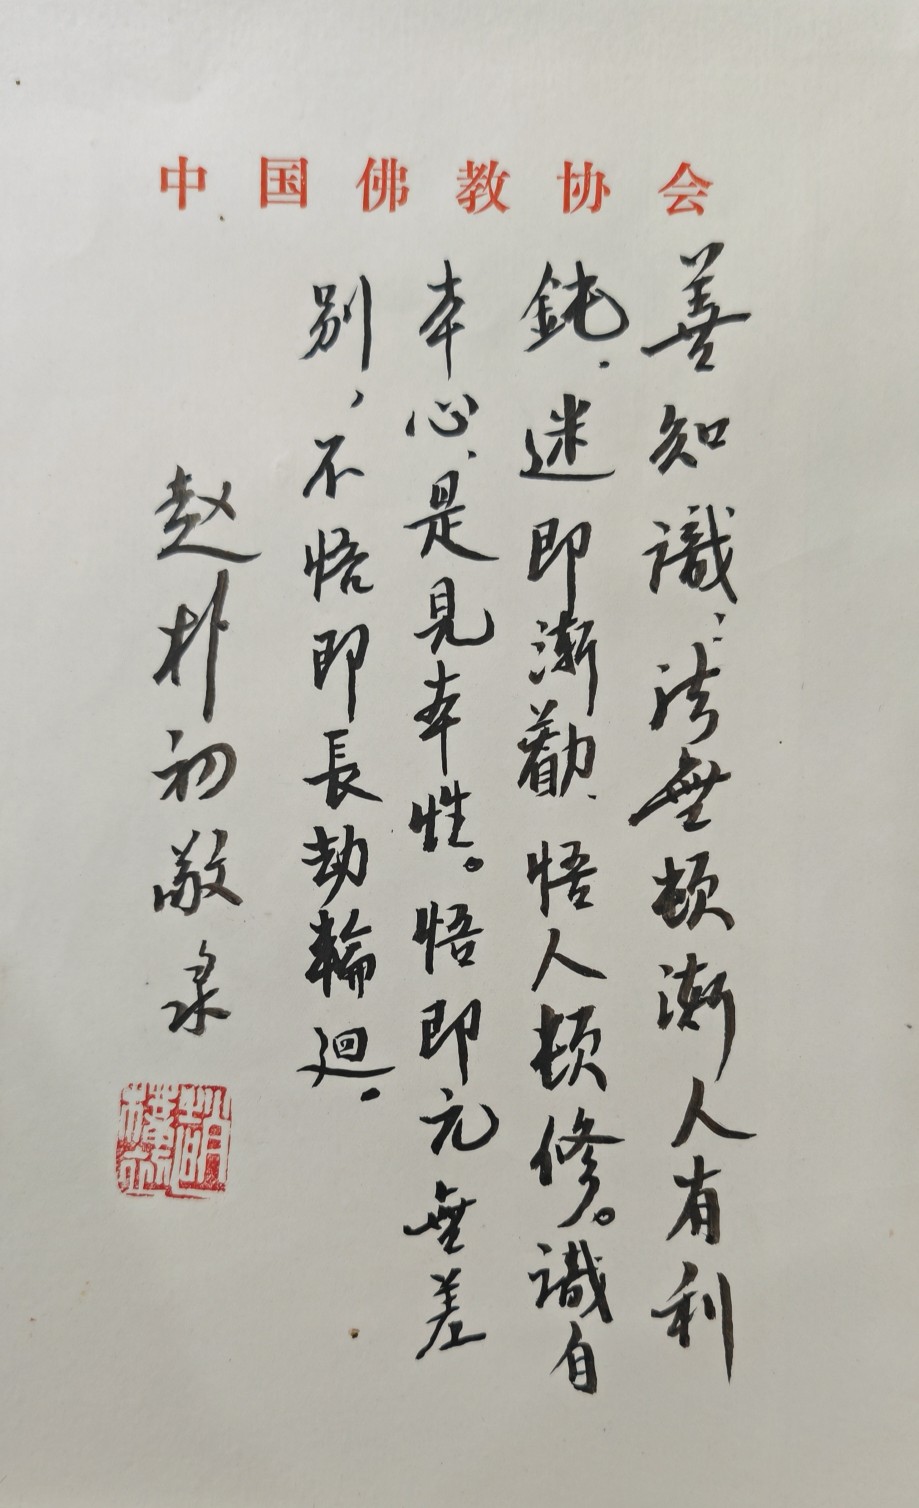 中国佛教协会
善知識：法無頓漸人有利
鈍．迷即漸勸．悟人頓修。識自
本心、是見本性。悟即元無差
别，不悟即長劫輪迴．
赵朴初敬录
趙樸初